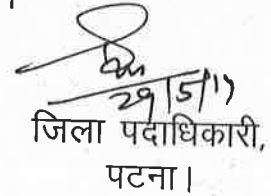 29/5/17
जिला पदाधिकारी,
पटना।